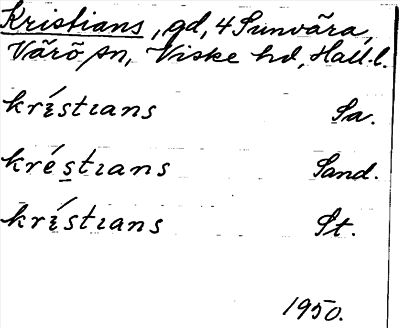 Kristians, gd, 4 Sunvära,
Värö sn, Viske hd, Hall. l.
krı́stıans Sa.
kréstıans Sand.
krı́stıans St.
1950.